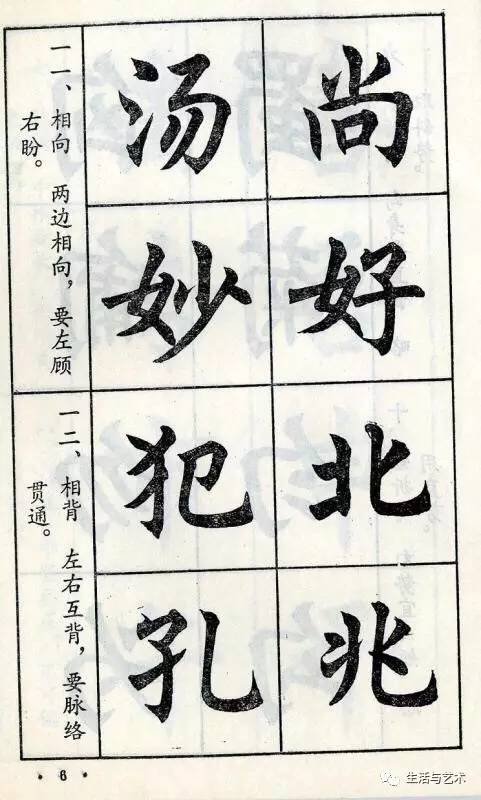 尚好北兆
汤妙犯孔
一一、相向 两边相向，要左顾
右盼。
一二、相背 左右互背，要脉络
贯通。
· 6 ·
生活与艺术